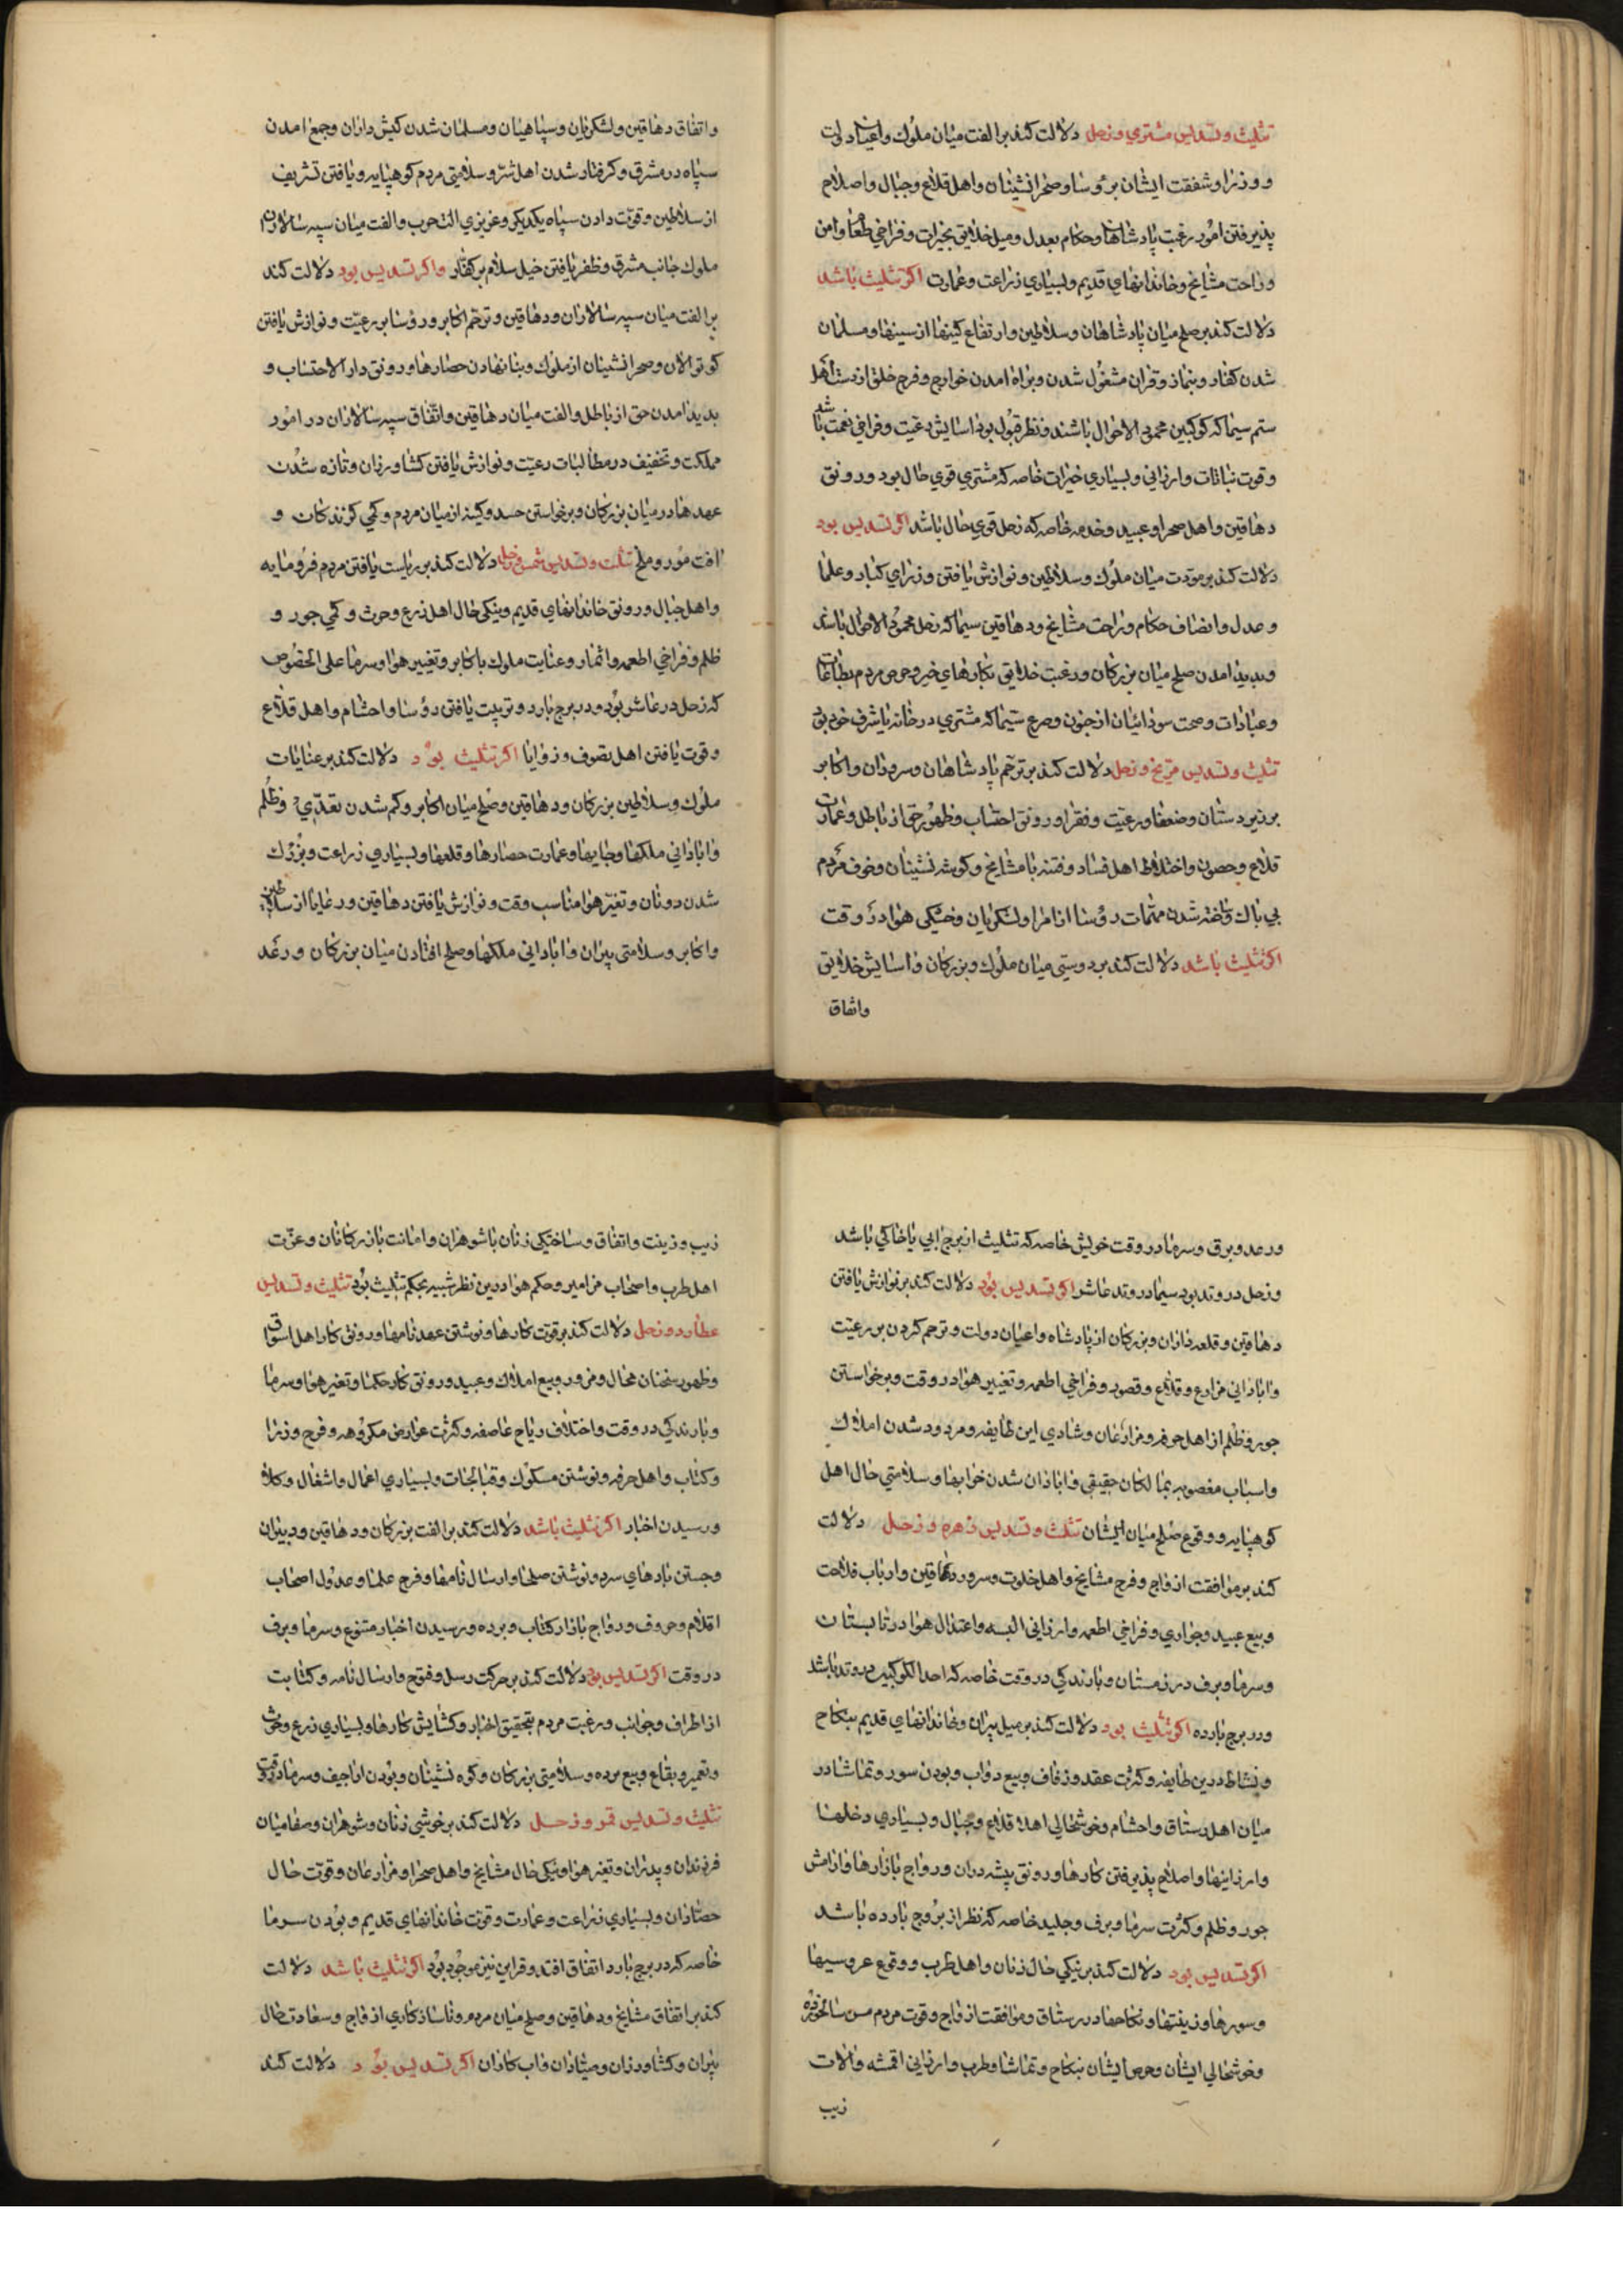 تثلیث و تسدیس مشتری و زحل دلالت کند بر الفت میان ملوک و اعیان دولت
و وزرا و شفقت ایشان بر رؤسا و صحرانشینان و اهل قلاع و جبال و اصلاح
پذیرفتن امور و رغبت پادشاهان و حکام بعدل و میل خلایق بخیرات و فراخی طعام و امن
و راحت مشایخ و خاندانهای قدیم و بسیاری زراعت و عمارت اکر تثلیث باشد
دلالت کند بر صلح میان پادشاهان و سلاطین و ارتفاع کینها از سینها و مسلمان
شدن کفار و بنماز و قران مشغول شدن و براه امدن خوارج و فرح خلق از دست اهل
ستم سیما که کوکبین محمود الاحوال باشند و نظر قبول بود اسایش رعیت و فراخی نعمت باشد
و قوت نباتات و ارزانی و بسیاری خیرات خاصه که مشتری قوی حال بود و رونق
دهاقین و اهل صحرا و عبید و خدمه خاصه که زحل قوی حال باشد اکر تسدیس بود
دلالت کند بر مودت میان ملوک و سلاطین و نوازش یافتن وزرای کبار و علما
و عدل و انصاف حکام و راحت مشایخ و دهاقین سیما که زحل محمود الاحوال باشد
و پدید امدن صلح میان بزرکان و رغبت خلایق بکارهای خیر و حرص مردم بطاعات
و عبادات و صحت سودائیان از جنون و صرع سیما که مشتری در خانه یا شرف خود بود
تثلیث و تسدیس مریخ و زحل دلالت کند بر ترحم پادشاهان و سروران و اکابر
بر زیردستان و ضعفا و رعیت و فقرا و رونق احتساب و ظهور حق از باطل و عمارت
قلاع و حصون و اختلاط اهل فساد و فتنه با مشایخ و کوشه نشینان و خوف مردم
بی باک و ساخته شدن مهمات رؤسا از امرا و لشکریان و خشکی هوا در وقت
اکر تثلیث باشد دلالت کند بر دوستی میان ملوک و بزرکان و اسایش خلایق
واتفاق
و اتفاق دهاقین و لشکریان و سپاهیان و مسلمان شدن کیش داران و جمع امدن
سپاه در مشرق و کرفتار شدن اهل شر و سلامتی مردم کوهپایه و یافتن تشریف
از سلاطین و قوت دادن سپاه یکدیکر و عزیزی الت حرب و الفت میان سپه سالاران
ملوک جانب مشرق و ظفر یافتن خیل سلام بر کفار و اکر تسدیس بود دلالت کند
بر الفت میان سپه سالاران و دهاقین و ترحم اکابر و رؤسا بر رعیت و نوازش یافتن
کوتوالان و صحرانشینان از ملوک و بنا نهادن حصارها و رونق دار الاحتساب و
پدید امدن حق از باطل و الفت میان دهاقین و اتفاق سپه سالاران در امور
مملکت و تخفیف در مطالبات رعیت و نوازش یافتن کشاورزان و تازه شدن
عهدها در میان بزرکان و برخواستن حسد و کینه از میان مردم و کمی کزندکان و
افت مور و ملخ تثلیث و تسدیس شمس و زحل دلالت کند بر ریاست یافتن مردم فرومایه
و اهل جبال و رونق خاندانهای قدیم و نیکی حال اهل زرع و حرث و کمی جور و
ظلم و فراخی اطعمه و اثمار و عنایت ملوک باکابر و تغییر هوا و سرما علی الخصوص
که زحل در عاشر بود و در برج بارد و تربیت یافتن رؤسا و احشام و اهل قلاع
و قوت یافتن اهل تصوف و زوایا اکر تثلیث بود دلالت کند بر عنایات
ملوک و سلاطین بزرکان و دهاقین و صلح میان اکابر و کم شدن تعدی و ظلم
و ابادانی ملکها و جایها و عمارت حصارها و قلعها و بسیاری زراعت و بزرک
شدن دونان و تغیر هوا مناسب وقت و نوازش یافتن دهاقین و رعایا از سلاطین
و اکابر و سلامتی پیران و ابادانی ملکها و صلح افتادن میان بزرکان و رعد
و رعد و برق و سرما در وقت خویش خاصه که تثلیث از برج ابی یا خاکی باشد
و زحل در وتد بود سیما در وتد عاشر اکر تسدیس بود دلالت کند بر نوازش یافتن
دهاقین و قلعه داران و بزرکان از پادشاه و اعیان دولت و ترحم کردن بر رعیت
و ابادانی مزارع و قلاع و قصور و فراخی اطعمه و تغییر هوا در وقت و برخواستن
جور و ظلم از اهل حرفه و مزارعان و شادی این طایفه و مردود شدن املاک
و اسباب مغصوبه بمالکان حقیقی و ابادان شدن خرابها و سلامتی حال اهل
کوهپایه و وقوع صلح میان ایشان تثلیث و تسدیس زهره و زحل دلالت
کند بر موافقت ازواج و فرح مشایخ و اهل خلوت و سرور دهاقین و ارباب فلاحت
و بیع عبید و جواری و فراخی اطعمه و ارزانی البسه و اعتدال هوا در تابستان
و سرما و برف در زمستان و بارندکی در وقت خاصه که احد الکوکبین در وتد باشد
و در برج بارده اکر تثلیث بود دلالت کند بر میل پیران و خاندانهای قدیم بنکاح
و نشاط درین طایفه و کثرت عقد و زفاف و بیع دواب و بودن سور و تماشا در
میان اهل رستاق و احشام و خوشحالی اهل قلاع و جبال و بسیاری دخلها
و ارزانیها و اصلاح پذیرفتن کارها و رونق پیشه وران و رواج بازارها و ارامش
جور و ظلم و کثرت سرما و برف و جلید خاصه که نظر از بروج بارده باشد
اکر تسدیس بود دلالت کند بر نیکی حال زنان و اهل طرب و وقوع عروسیها
و سورها و زینتها و نکاحها در رستاق و موافقت ازواج و قوت مردم سالخورده
و خوشحالی ایشان و حرص ایشان بنکاح و تماشا و طرب و ارزانی اقمشه و الات
زیب
زیب و زینت و اتفاق و ساختیکی زنان با شوهران و امانت بازرکانان و عزت
اهل طرب و اصحاب مزامیر و حکم هوا درین نظر شبیه بحکم تثلیث بود تثلیث و تسدیس
عطارد و زحل دلالت کند بر قوت کارها و نوشتن عهدنامها و رونق کار اهل اسواق
و ظهور سخنان محال و مزور و بیع املاک و عبید و رونق کار حکما و تغیر هوا و سرما
و بارندکی در وقت و اختلاف ریاح عاصفه و کثرت عوارض مکروهه و فرح وزرا
و کتاب و اهل حرفه و نوشتن صکوک و قبالجات و بسیاری اعمال و اشغال و کلا
و رسیدن اخبار اکر تثلیث باشد دلالت کند بر الفت بزرکان و دهاقین و دبیران
و جستن بادهای سرد و نوشتن صلحنا و ارسال نامها و فرح علما و عدول اصحاب
اقلام و حروف و رواج بازار کتاب و برده و رسیدن اخبار متنوع و سرما و برف
در وقت اکر تسدیس بود دلالت کند بر حرکت رسل و فتوح و ارسال نامه و کتابت
از اطراف و جوانب و رغبت مردم بتحقیق اخبار و کشایش کارها و بسیاری زرع و حرث
و تعمیر بقاع و بیع برده و سلامتی بزرکان و کوه نشینان و بودن اراجیف و سرما در وقت
تثلیث و تسدیس قمر و زحل دلالت کند بر خوشی زنان و شوهران و صفا میان
فرزندان و پدران و تغیر هوا و نیکی حال مشایخ و اهل صحرا و مزارعان و قوت حال
حصادان و بسیاری زراعت و عمارت و قوت خاندانهای قدیم و بودن سرما
خاصه که در برج بارد اتفاق افتد و قراین نیز موجود بود اکر تثلیث باشد دلالت
کند بر اتفاق مشایخ و دهاقین و صلح میان مردم و ناسازکاری ازواج و سعادت حال
پیران و کشاورزان و صیادان و اب کاران اکر تسدیس بود دلالت کند